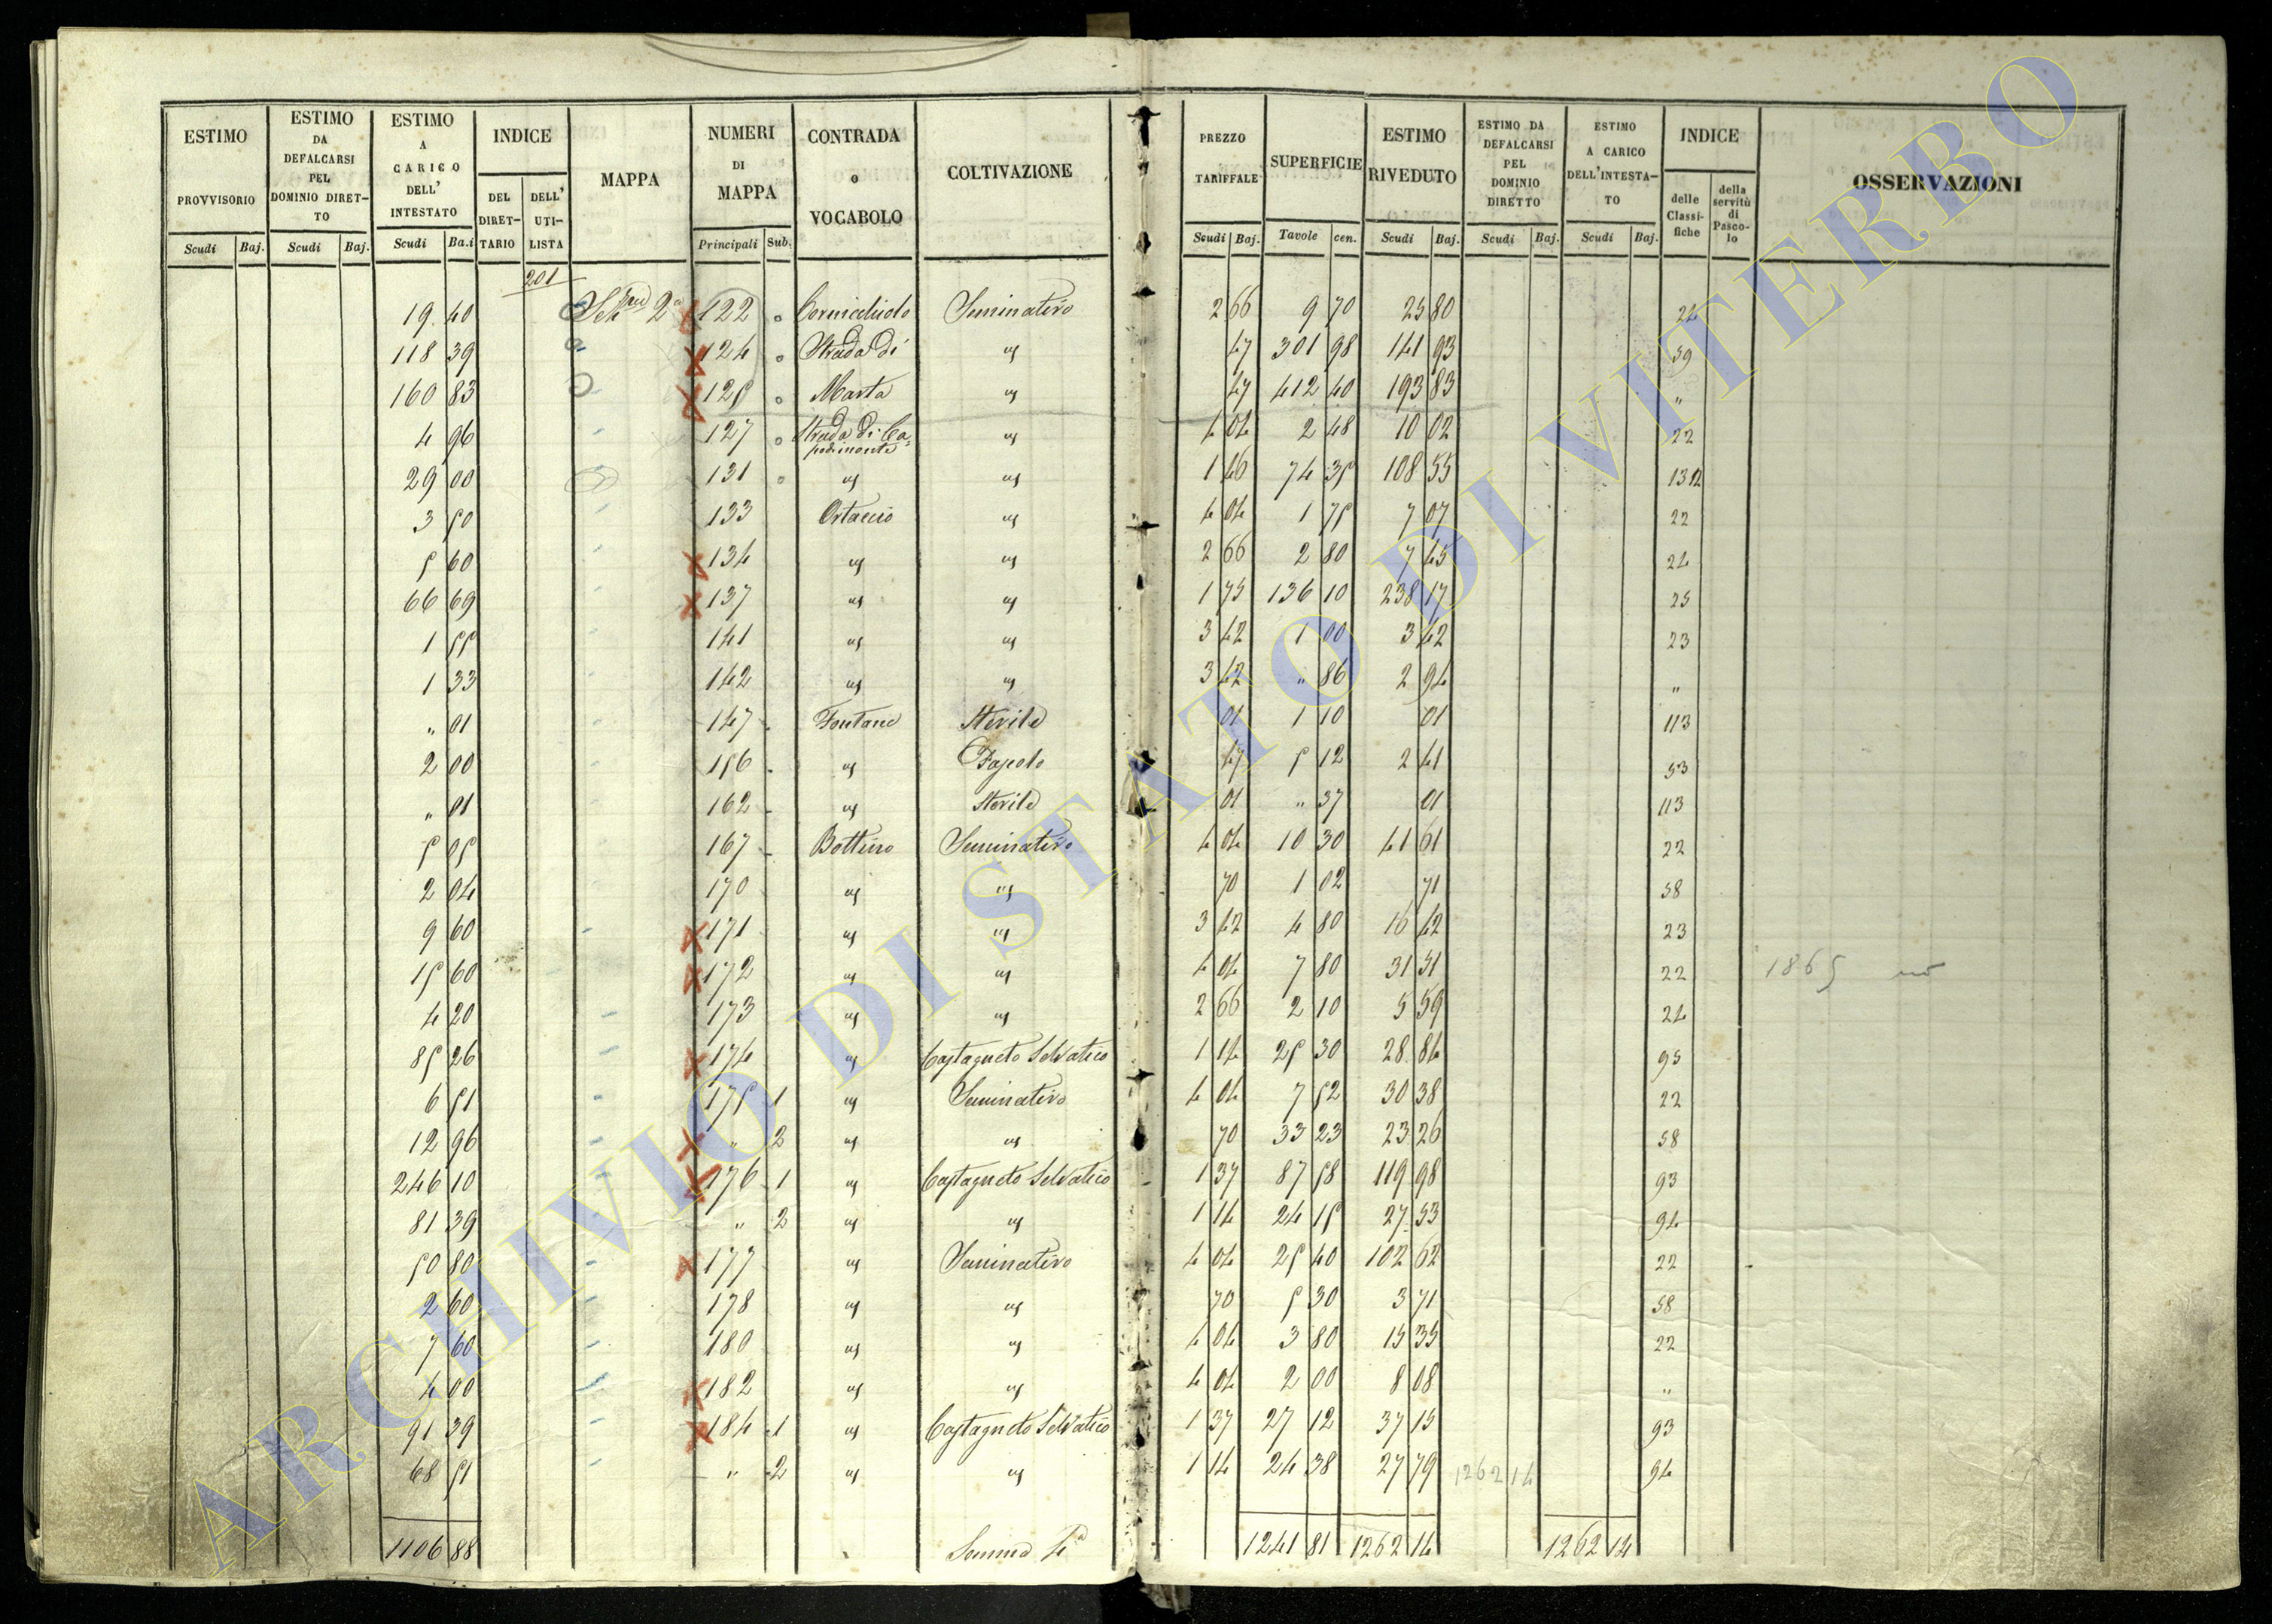 ESTIMO PROVVISORIO Scudi Baj.
ESTIMO DA DEFALCARSI PEL DOMINIO DIRET-TO Scudi Baj.
ESTIMO A CARICO DELL' INTESTATO Scudi Ba.i
INDICE DEL DIRET-TARIO DELL' UTI-LISTA
MAPPA
NUMERI DI MAPPA Principali Sub.
CONTRADA o VOCABOLO
COLTIVAZIONE
PREZZO TARIFFALE Scudi Baj.
SUPERFICIE Tavole cen.
ESTIMO RIVEDUTO Scudi Baj.
ESTIMO DA DEFALCARSI PEL DOMINIO DIRETTO Scudi Baj.
ESTIMO A CARICO DELL'INTESTA-TO Scudi Baj.
INDICE delle Classi-fiche della servitù di Pasco-lo
OSSERVAZIONI
201
19 40 2ª 122 Seminativo 2 66 9 70 25 80 24
118 39 124 Strada di " 47 301 98 141 93 59
160 83 125 Marta " 47 412 40 193 83 "
4 96 127 Strada di Ca= podimonte " 4 04 2 48 10 02 22
29 00 131 " " 1 46 74 35 108 55 132
3 50 133 Ortaccio " 4 04 1 75 7 07 22
5 60 134 " " 2 66 2 80 7 45 24
66 69 137 " " 1 75 136 10 238 17 25
1 55 141 " " 3 42 1 00 3 42 23
1 33 142 " " 3 42 " 86 2 94 "
" 01 147 Fontane Sterile 01 1 10 01 113
2 00 156 " Pascolo 47 5 12 2 41 53
" 01 162 " Sterile 01 " 37 01 113
5 05 167 Bottino Seminativo 4 04 10 30 41 61 22
2 04 170 " " 70 1 02 71 58
9 60 171 " " 3 42 4 80 16 42 23
15 60 172 " " 4 04 7 80 31 51 22 1865
4 20 173 " " 2 66 2 10 5 59 24
85 26 174 " Castagneto Selvatico 1 14 25 30 28 84 95
6 51 175 1 " Seminativo 4 04 7 52 30 38 22
12 96 " 2 " " 70 33 23 23 26 58
246 10 176 1 " Castagneto Selvatico 1 37 87 58 119 98 93
81 39 " 2 " " 1 14 24 15 27 53 94
50 80 177 " Seminativo 4 04 25 40 102 62 22
2 60 178 " " 70 5 30 3 71 58
7 60 180 " " 4 04 3 80 15 35 22
4 00 182 " " 4 04 2 00 8 08 "
91 39 184 1 " Castagneto Selvatico 1 37 27 12 37 15 93
68 51 " 2 " " 1 14 24 38 27 79 1262 14 94
1106 88 Somma 1241 81 1262 14 1262 14
ARCHIVIO DI STATO DI VITERBO